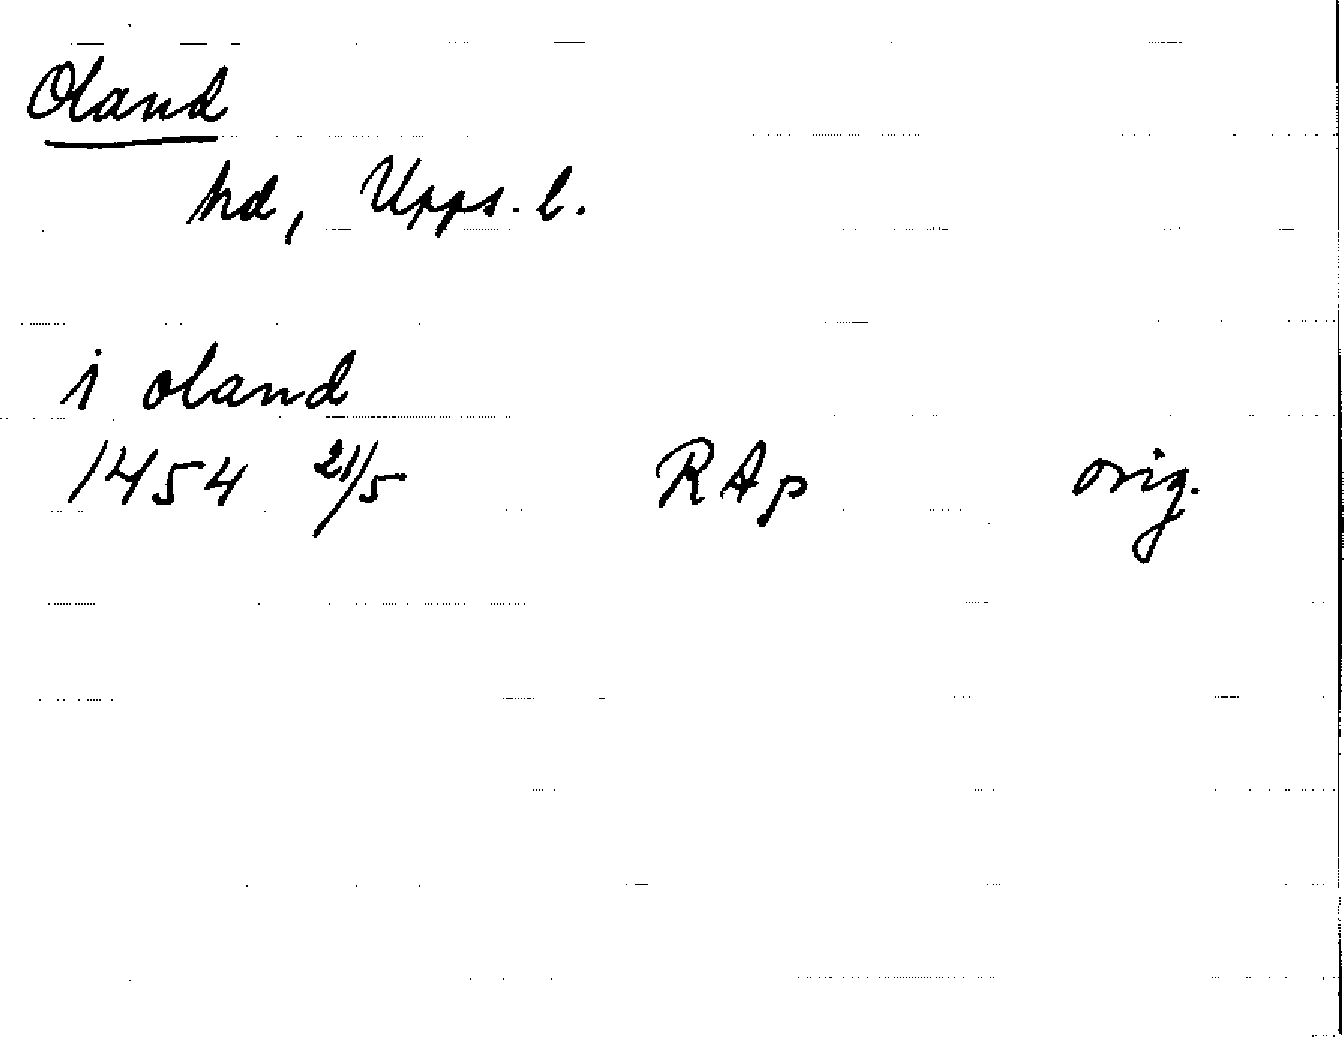 Oland
hd, Upps. l.
i oland
1454 21/5 RAp orig.